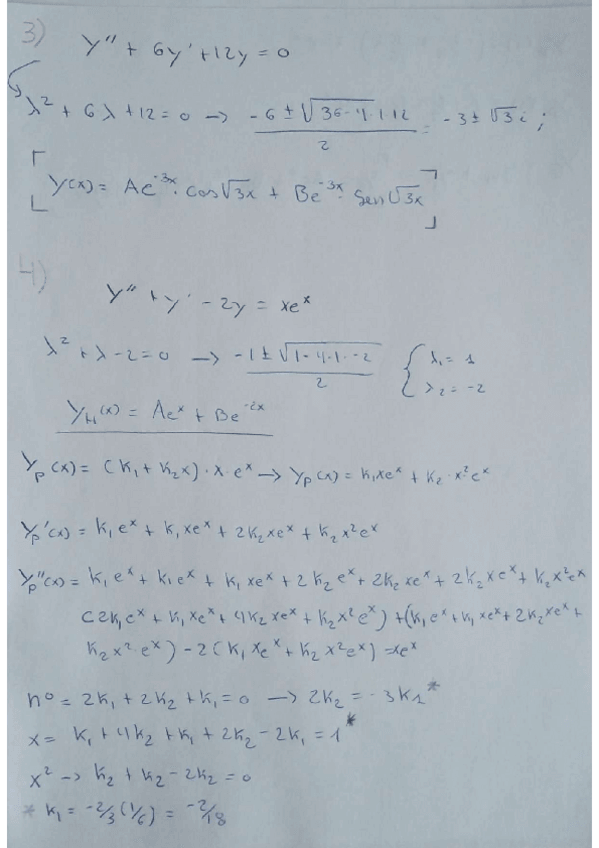 3)
y'' + 6y' + 12y = 0
λ² + 6λ + 12 = 0 → (-6 ± √(36-4·1·12))/2 = -3 ± √3 i ;
y(x) = Ae^-3x · cos√3x + Be^-3x · sen√3x
4)
y'' + y' - 2y = xe^x
λ² + λ - 2 = 0 → (-1 ± √(1-4·1·-2))/2 { λ₁ = 1
λ₂ = -2
y_H(x) = Ae^x + Be^-2x
y_p(x) = (K₁ + K₂x) · x · e^x → y_p(x) = K₁xe^x + K₂ · x²e^x
y_p'(x) = K₁e^x + K₁xe^x + 2K₂xe^x + K₂x²e^x
y_p''(x) = K₁e^x + K₁e^x + K₁xe^x + 2K₂e^x + 2K₂xe^x + 2K₂xe^x + K₂x²e^x
(2K₁e^x + K₁xe^x + 4K₂xe^x + K₂x²e^x) + (K₁e^x + K₁xe^x + 2K₂xe^x +
K₂x²·e^x) - 2(K₁xe^x + K₂x²e^x) = xe^x
nº = 2K₁ + 2K₂ + K₁ = 0 → 2K₂ = -3K₁*
x = K₁ + 4K₂ + K₁ + 2K₂ - 2K₁ = 1*
x² → K₂ + K₂ - 2K₂ = 0
* K₁ = -2/3 (1/6) = -2/18